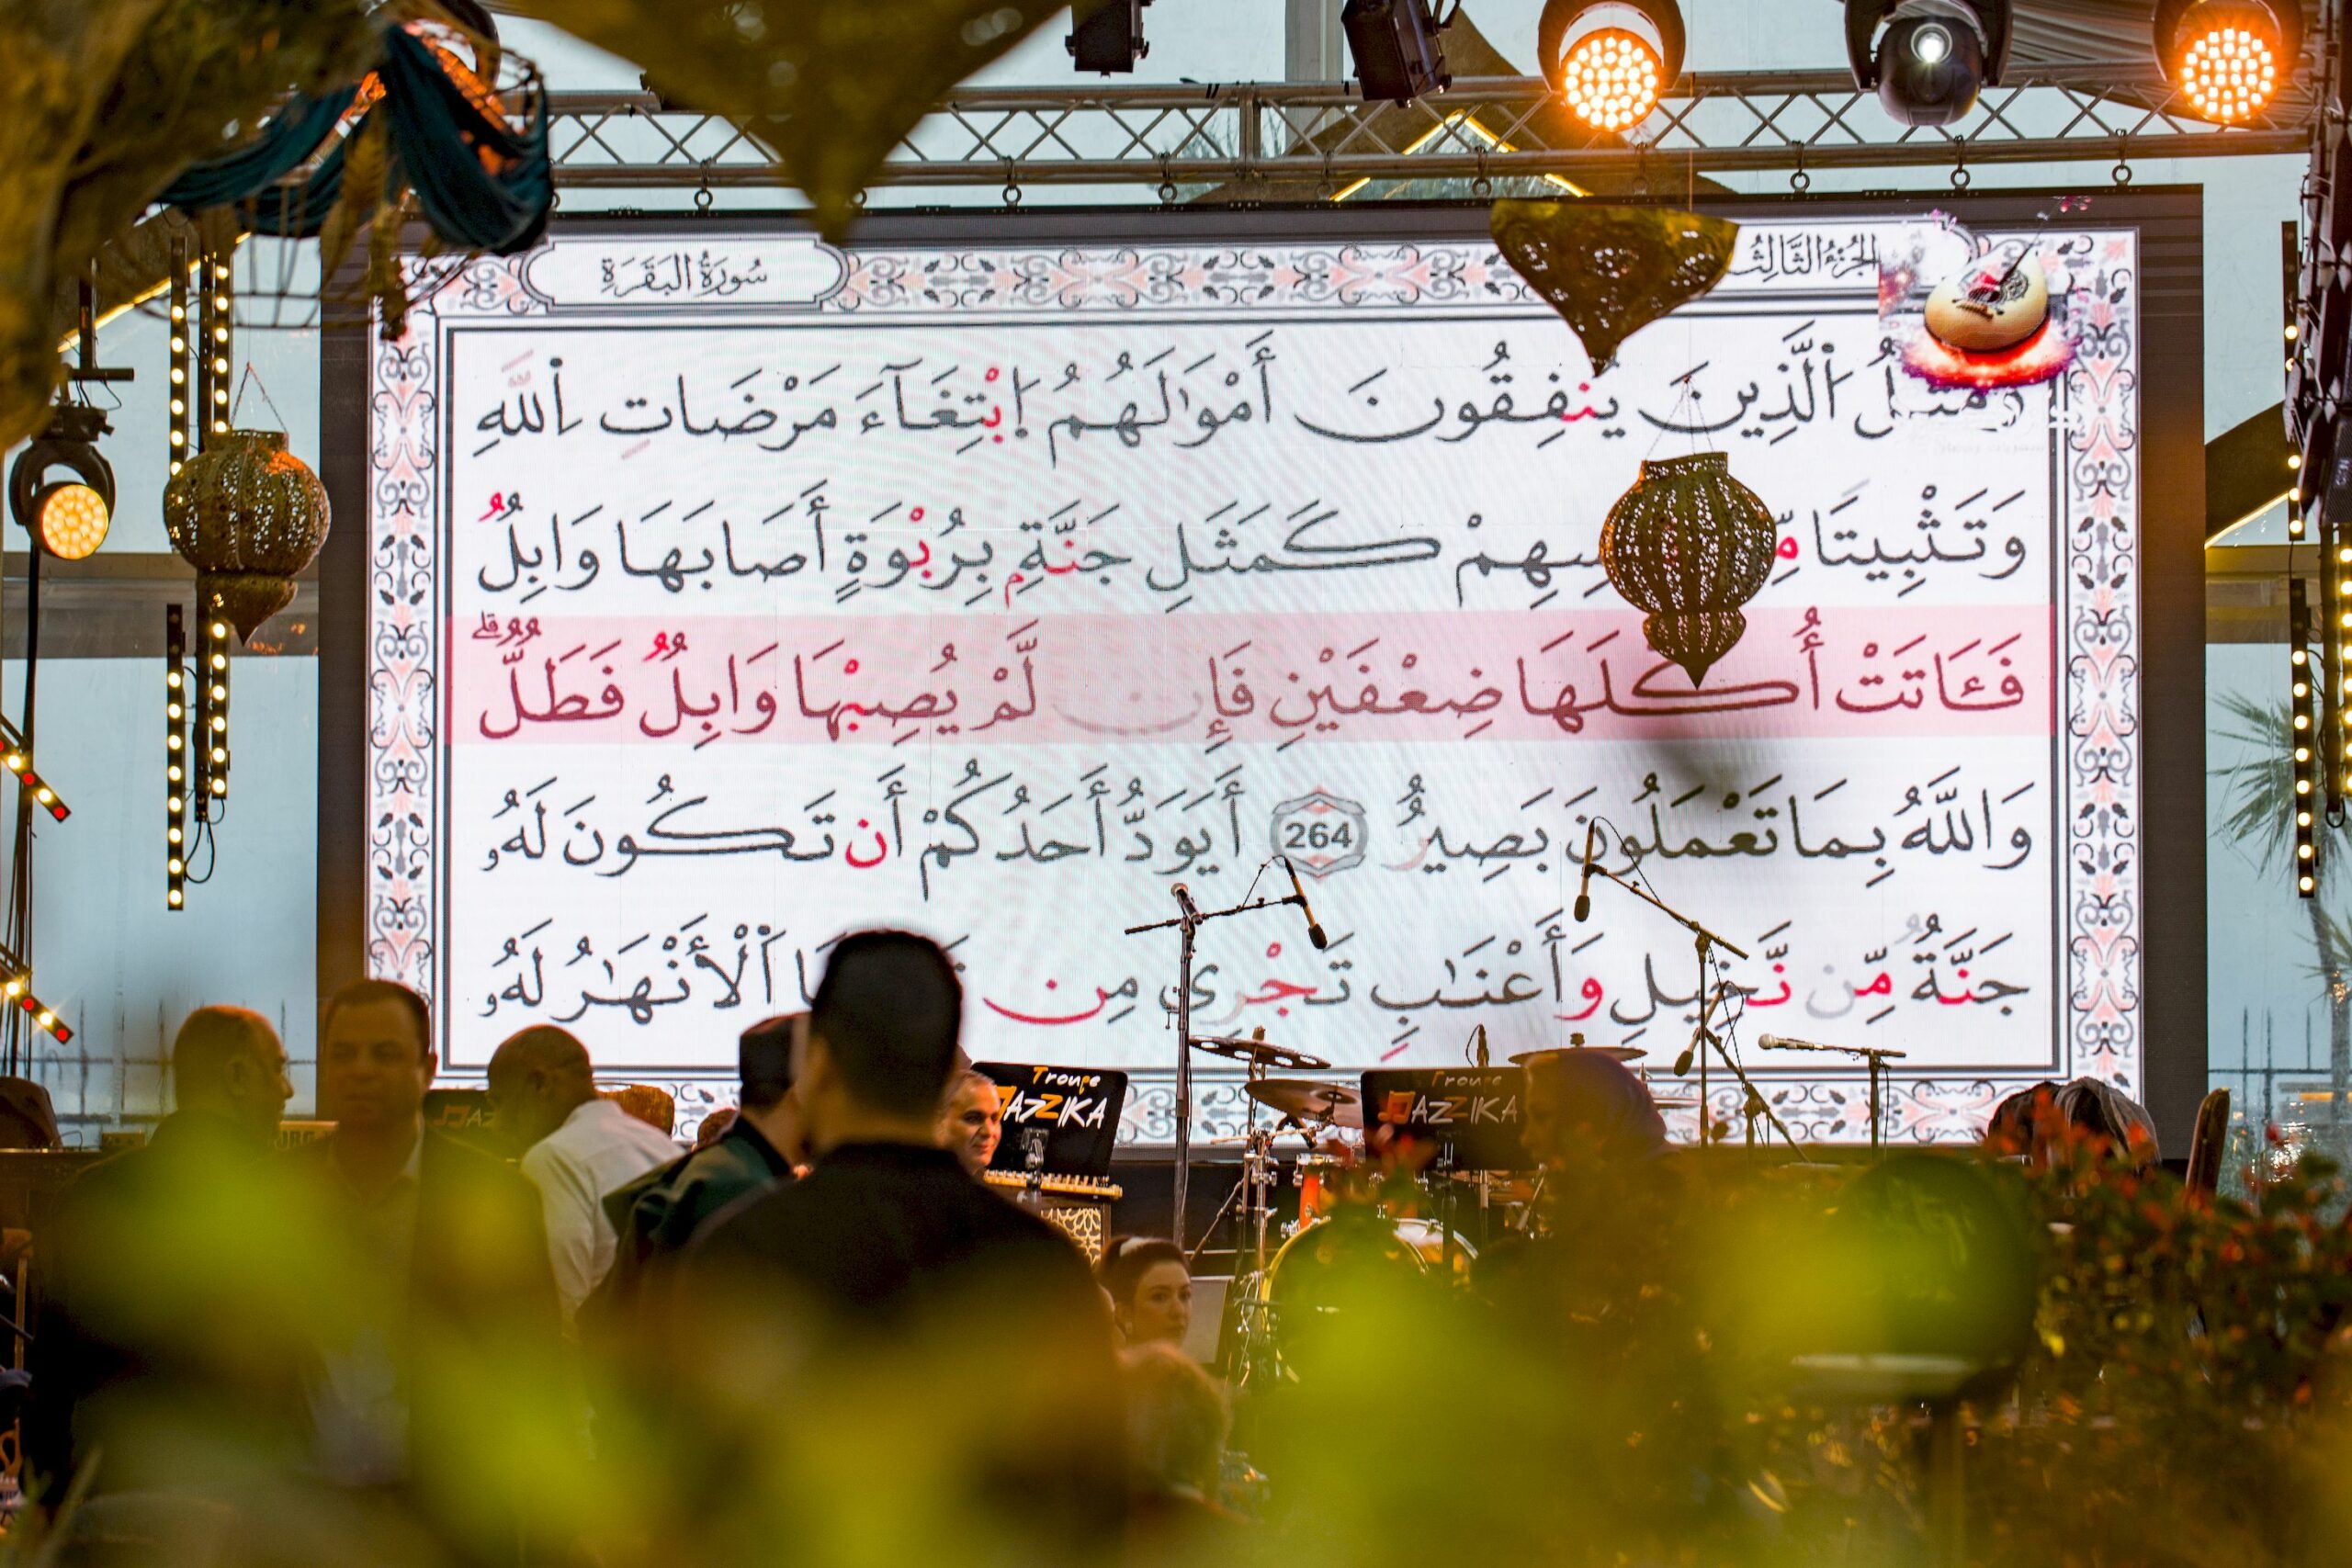 سُورَةُ البَقَرَةِ
الجُزْءُ الثَّالِثُ
وَمَثَلُ اُ۬لذِينَ يُنفِقُونَ أَمْوَٰلَهُمُ اُ۪بْتِغَآءَ مَرْضَاتِ اِ۬للَّهِ
وَتَثْبِيتًا مِّ سِهِمْ كَمَثَلِ جَنَّةِۭ بِرُبْوَةٍ أَصَابَهَا وَابِلٌ
فَـَٔاتَتْ أُكْلَهَا ضِعْفَيْنِ فَإِن لَّمْ يُصِبْهَا وَابِلٌ فَطَلٌّ ۗ
وَاللَّهُ بِمَا تَعْمَلُونَ بَصِيرٌ 264 أَيَوَدُّ أَحَدُكُمْ أَن تَكُونَ لَهُۥ
جَنَّةٌ مِّن نَّخِيلٍ وَأَعْنَٰبٍ تَجْرِي مِن اَ۬لْأَنْهَٰرُ لَهُۥ
Troupe
JAZZIKA
Troupe
JAZZIKA